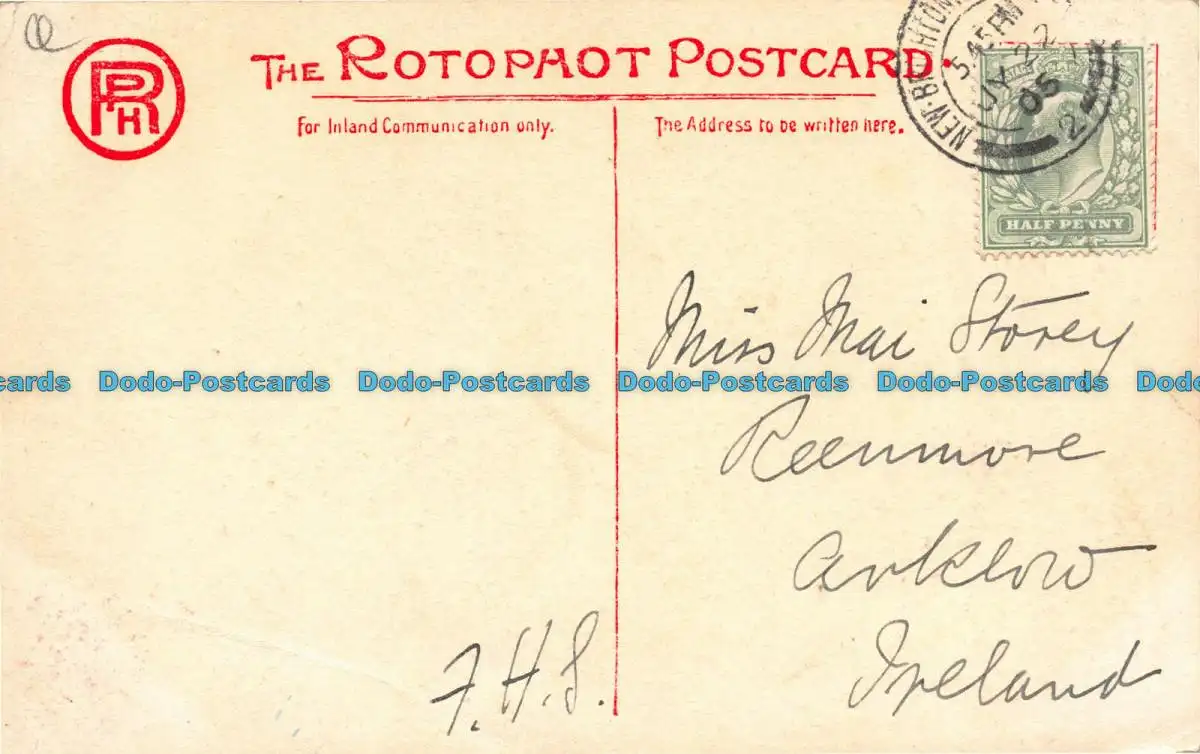 THE ROTOPHOT POSTCARD.
RPH
For Inland Communication only.
The Address to be written here.
NEW BRIGHTON
5.45PM
JY 22
05
2
POSTAGE
HALF PENNY
Miss Mai Storey
Dodo-Postcards Dodo-Postcards Dodo-Postcards Dodo-Postcards
Reenmore
Arklow
Ireland
F.H.S.